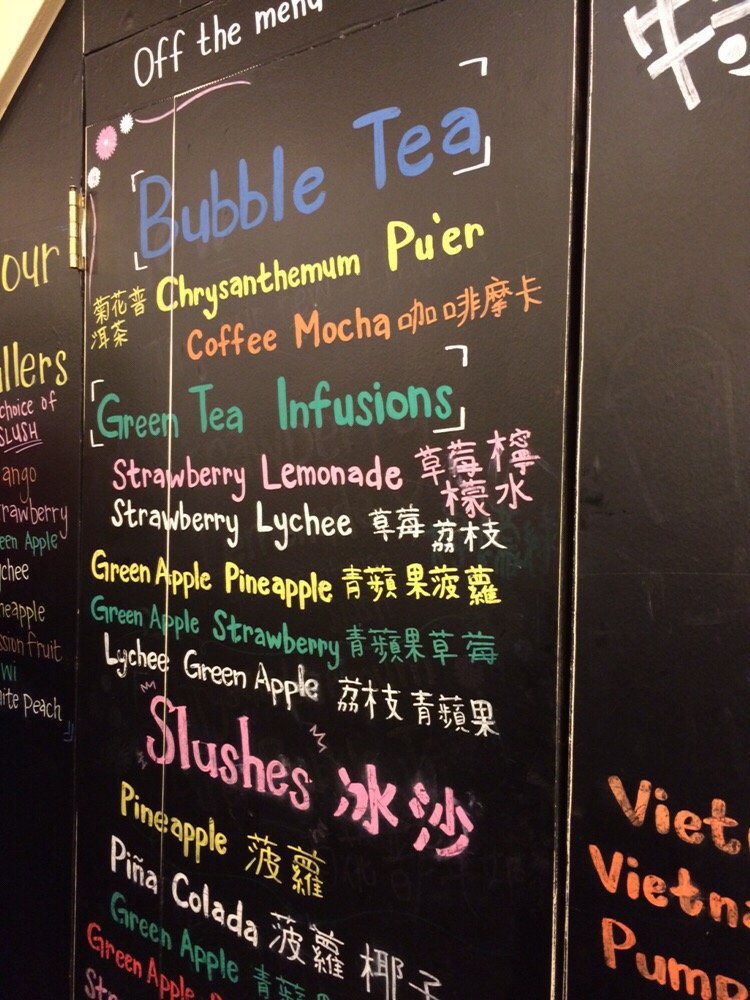 Off the menu
Bubble Tea
Chrysanthemum Pu'er
菊花普
洱茶
Coffee Mocha 咖啡摩卡
Green Tea Infusions
Strawberry Lemonade 草莓檸
檬水
Strawberry Lychee 草莓荔枝
Green Apple Pineapple 青蘋果菠蘿
Green Apple Strawberry 青蘋果草莓
Lychee Green Apple 荔枝青蘋果
Slushes 冰沙
Pineapple 菠蘿
Piña Colada 菠蘿椰子
Green Apple 青蘋
Green Apple
our
llers
choice of
SLUSH
ango
rawberry
een Apple
chee
neapple
ssion fruit
wi
ite Peach
特
Viet
Vietna
Pump